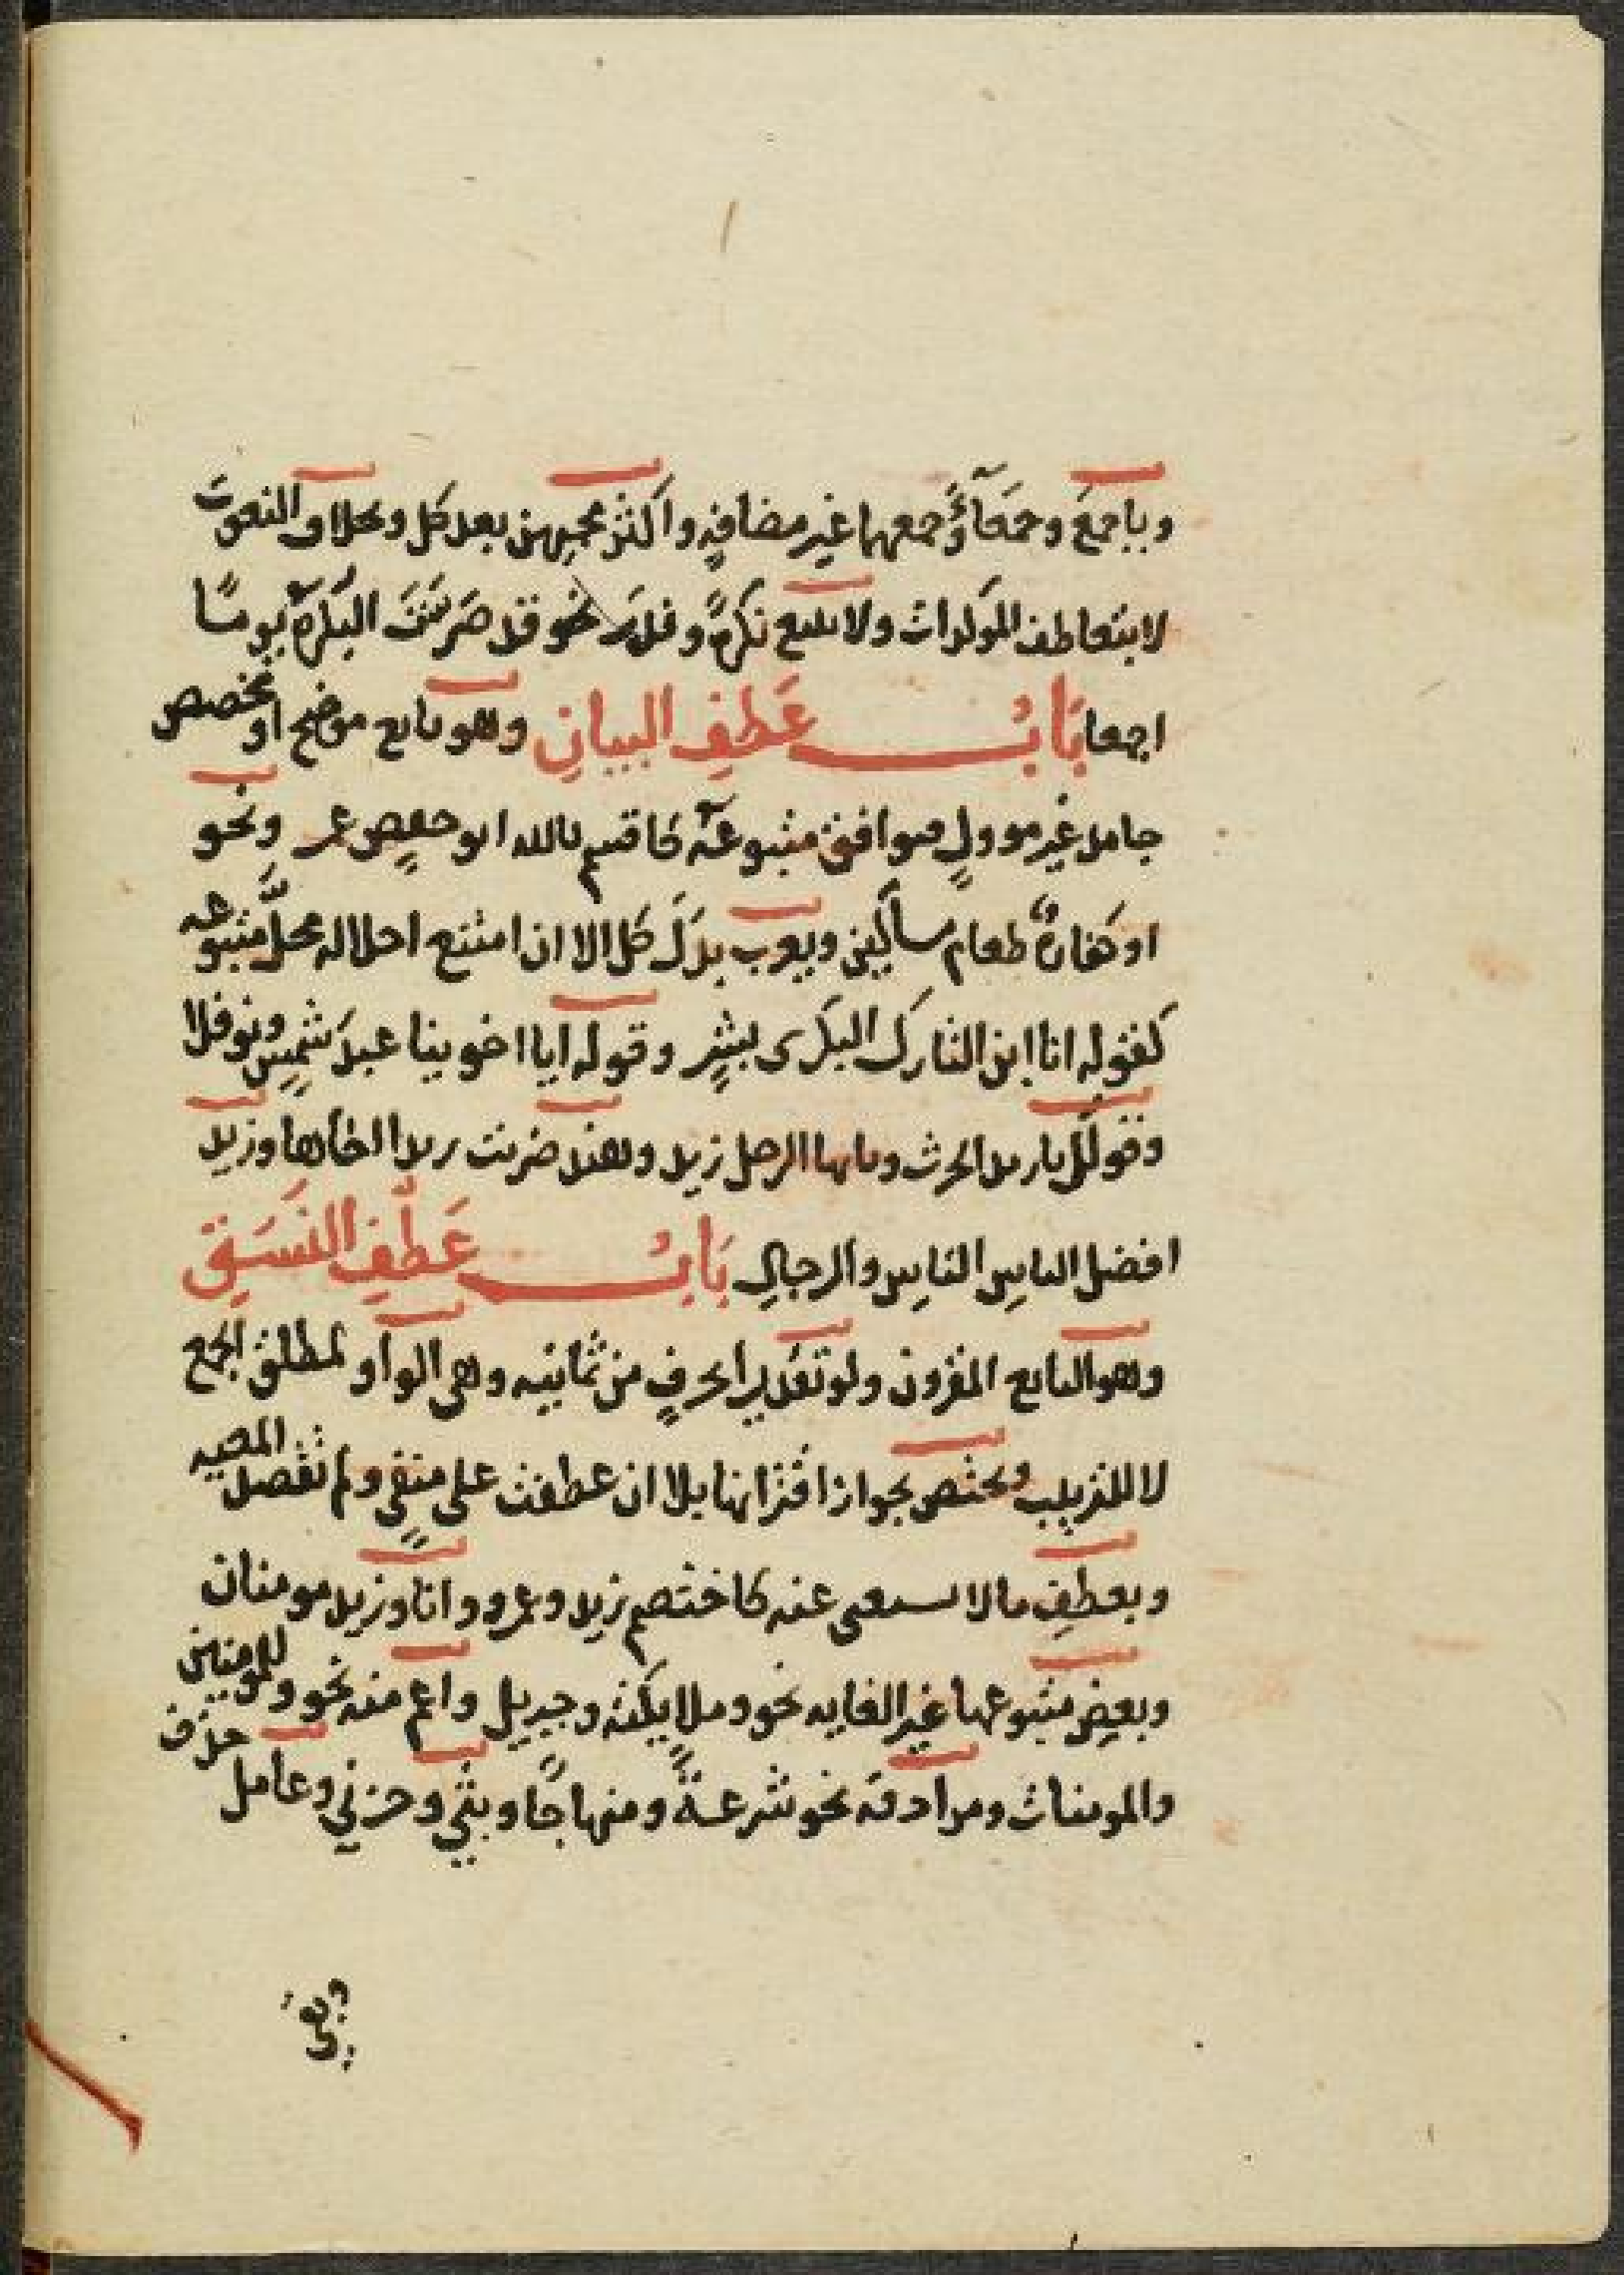 وباجمعَ وجمعَآءَ وجمعهما غير مضافةٍ واكثر مجيهن بعد كل وبخلاف النعوت
لا يتعاطف الموكدات ولا يتبع نكرةً وندَر نحو قد صَرَّتِ البَكرةُ يومًا
اجمعا بَابُ عَطفِ البيانِ وهو تابع موضح او مخصص
جامد غير موولٍ موافق متبوعَه كاقسم بالله ابو حفصٍ عمر ونحو
او كفارةٌ طعام مساكين ويعرب بدَلَ كل الا ان امتنع احلاله محلَّ متبوعه
كقوله انا ابن التارك البكرى بشرٍ وقوله ايا اخوينا عبدَ شمسٍ ونوفلا
وقولك يا زيد الحرث ويا ايها الرجل زيد وهند ضربت زيدا اخاها وزيد
افضل الناسِ النساءِ والرجالِ بَابُ عَطْفِ النَّسَقِ
وهو التابع المقرون ولو تقديرا بحرفٍ من ثمانيه وهي الواو لمطلق الجمع
لا للترتيب وتختص بجواز اقترانها بلا ان عطفت على منفيٍ ولم تقصد المعيه
وبعطفِ ما لا يستغنى عنه كاختصم زيد وعمرو وانا وزيد مومنان
وبعضِ متبوعها غير الغايه نحو وملايكته وجبريل واعم منه نحو وللمومنين
والمومنات ومرادفه نحو شرعةً ومنهاجًا وبثي وحزني وعامل حذف
وبقى